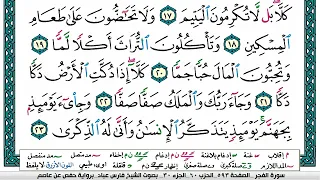 كَلَّا ۖ بَل لَّا تُكْرِمُونَ الْيَتِيمَ ﴿١٧﴾ وَلَا تَحَاضُّونَ عَلَىٰ طَعَامِ
الْمِسْكِينِ ﴿١٨﴾ وَتَأْكُلُونَ التُّرَاثَ أَكْلًا لَّمًّا ﴿١٩﴾
وَتُحِبُّونَ الْمَالَ حُبًّا جَمًّا ﴿٢٠﴾ كَلَّا إِذَا دُكَّتِ الْأَرْضُ دَكًّا
دَكًّا ﴿٢١﴾ وَجَاءَ رَبُّكَ وَالْمَلَكُ صَفًّا صَفًّا ﴿٢٢﴾ وَجِيءَ يَوْمَئِذٍ
بِجَهَنَّمَ يَوْمَئِذٍ يَتَذَكَّرُ الْإِنسَانُ وَأَنَّىٰ لَهُ الذِّكْرَىٰ ﴿٢٣﴾
سورة الفجر الصفحة ٥٩٣ الحزب ٦٠ الجزء ٣٠ بصوت الشيخ فارس عباد برواية حفص عن عاصم